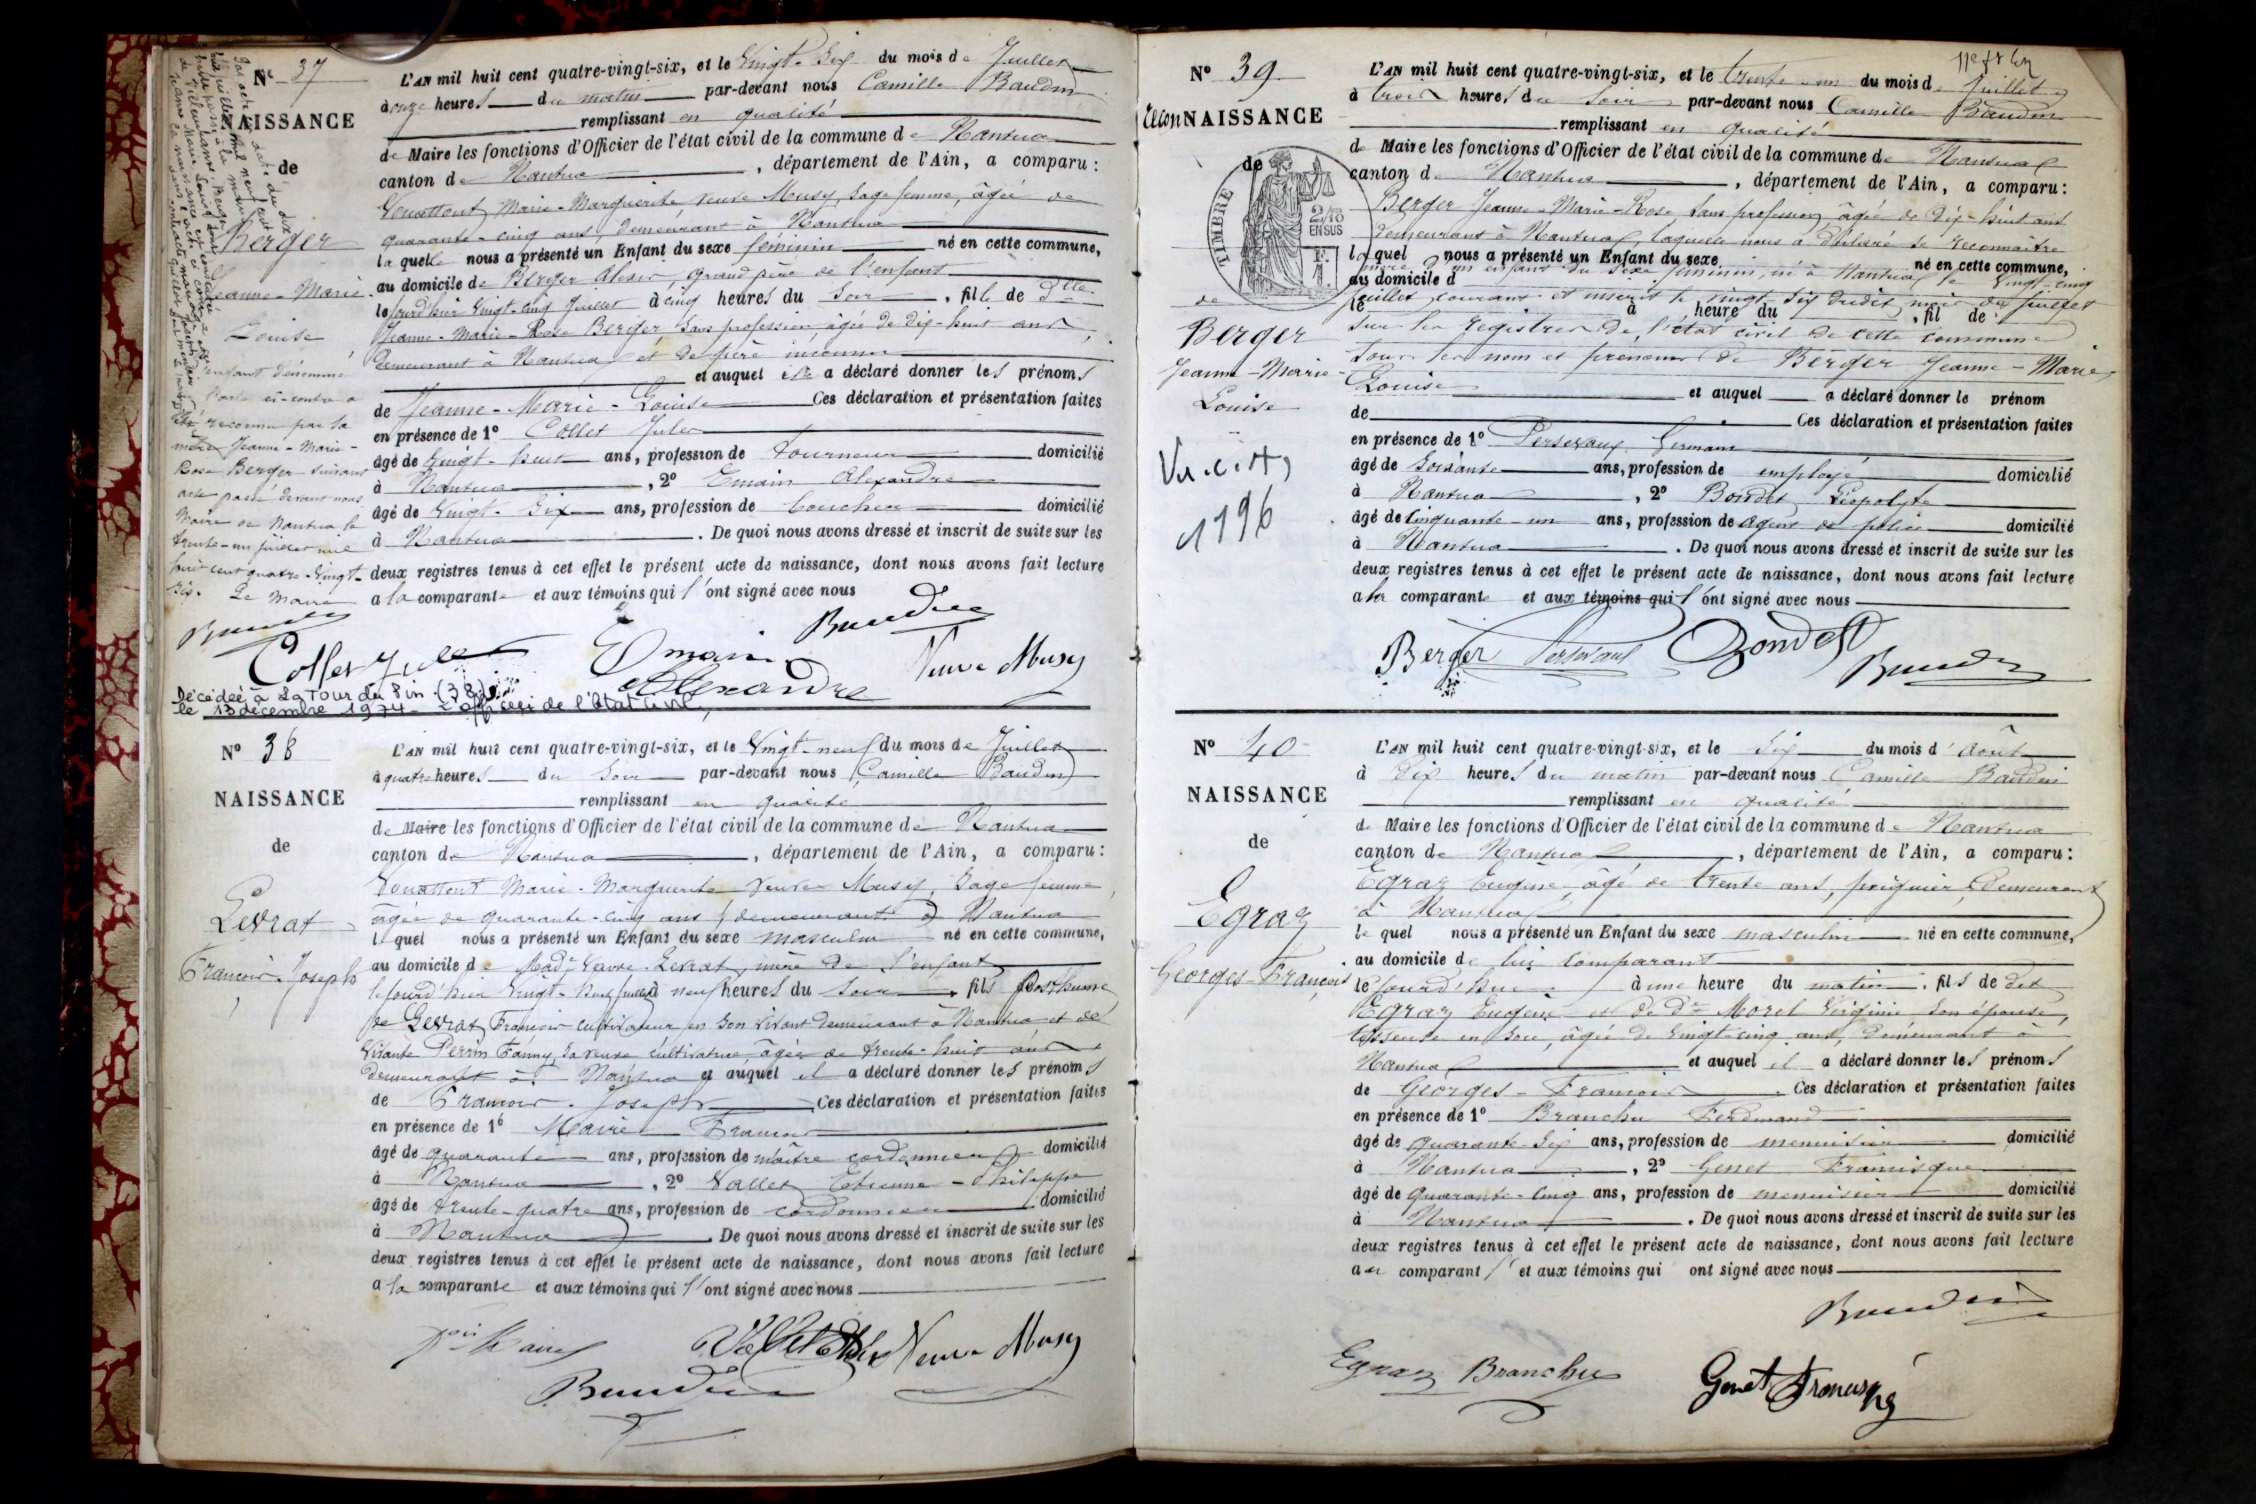 N° 37
NAISSANCE
de
Berger
Jeanne-Marie
Louise
L'enfant dénommé
à l'acte ci-contre a
été reconnu par sa
mère Jeanne-Marie-
Rose Berger suivant
acte passé devant nous
Maire de Nantua le
trente-un juillet mil
huit cent quatre-vingt-
six. Le Maire
Baudin
L'AN mil huit cent quatre-vingt-six, et le vingt-six du mois de Juillet
à onze heures du matin par-devant nous Camille Baudin
remplissant en qualité
de Maire les fonctions d'Officier de l'état civil de la commune de Nantua
canton de Nantua, département de l'Ain, a comparu:
Marie-Marguerite, veuve Musy, sage femme, âgée de
quarante-cinq ans, demeurant à Nantua
la quelle nous a présenté un Enfant du sexe féminin né en cette commune,
au domicile de Berger, grand père de l'enfant
le jourd'hier vingt-cinq Juillet à cinq heures du soir, fille de Dlle
Jeanne-Marie-Rose Berger sans profession, âgée de dix-huit ans
demeurant à Nantua et de père inconnu
et auquel elle a déclaré donner les prénoms
de Jeanne-Marie-Louise Ces déclaration et présentation faites
en présence de 1° Collet Jules
âgé de vingt-huit ans, profession de tourneur domicilié
à Nantua, 2° Emain Alexandre
âgé de vingt-six ans, profession de boucher domicilié
à Nantua. De quoi nous avons dressé et inscrit de suite sur les
deux registres tenus à cet effet le présent acte de naissance, dont nous avons fait lecture
a la comparante et aux témoins qui l'ont signé avec nous
Collet Jules Emain Alexandre Baudin Veuve Musy
Décédée à La Tour du Pin (38)
le 13 décembre 1974 - L'officier de l'Etat Civil,
N° 38
NAISSANCE
de
Levrat
François-Joseph
L'AN mil huit cent quatre-vingt-six, et le vingt-neuf du mois de Juillet
à quatre heures du soir par-devant nous Camille Baudin
remplissant en qualité
de Maire les fonctions d'Officier de l'état civil de la commune de Nantua
canton de Nantua, département de l'Ain, a comparu:
Marie-Marguerite veuve Musy, sage femme,
âgée de quarante-cinq ans, demeurant à Nantua
l quel nous a présenté un Enfant du sexe masculin né en cette commune,
au domicile de Made veuve Levrat, mère de l'enfant
le jourd'hier vingt-huit juillet à neuf heures du soir, fils posthume
de Levrat François cultivateur en son vivant demeurant à Nantua et de
vivante Perrin Fanny, sa veuve cultivatrice, âgée de trente-huit ans
demeurant à Nantua et auquel il a déclaré donner les prénoms
de François-Joseph Ces déclaration et présentation faites
en présence de 1° Maire François
âgé de quarante ans, profession de maître cordonnier domicilié
à Nantua, 2° Vallet Etienne-Philippe
âgé de trente-quatre ans, profession de cordonnier domicilié
à Nantua. De quoi nous avons dressé et inscrit de suite sur les
deux registres tenus à cet effet le présent acte de naissance, dont nous avons fait lecture
a la comparante et aux témoins qui l'ont signé avec nous
Veuve Musy
Baudin
N° 39
ReconNAISSANCE
de
TIMBRE
2/10
EN SUS
de
Berger
Jeanne-Marie-
Louise
1196
L'AN mil huit cent quatre-vingt-six, et le trente-un du mois de Juillet
à trois heures du soir par-devant nous Camille Baudin
remplissant en qualité
de Maire les fonctions d'Officier de l'état civil de la commune de Nantua
canton de Nantua, département de l'Ain, a comparu:
Berger Jeanne-Marie-Rose, sans profession, âgée de dix-huit ans
demeurant à Nantua, laquelle nous a déclaré se reconnaître
la quel nous a présenté un Enfant du sexe né en cette commune,
mère d'un enfant du sexe féminin, né à Nantua le vingt-cinq
au domicile d
juillet courant et inscrit le vingt-six dudit mois de juillet
le à heure du, fil de
sur les registres de l'état civil de cette commune
sous les nom et prénoms de Berger Jeanne-Marie-
Louise et auquel a déclaré donner le prénom
de Ces déclaration et présentation faites
en présence de 1° Persevaux Germain
âgé de soixante ans, profession de employé domicilié
à Nantua, 2° Bondet
âgé de cinquante-un ans, profession de agent de police domicilié
à Nantua. De quoi nous avons dressé et inscrit de suite sur les
deux registres tenus à cet effet le présent acte de naissance, dont nous avons fait lecture
a la comparante et aux témoins qui l'ont signé avec nous
Berger Bondet Baudin
N° 40
NAISSANCE
de
Egraz
Georges-François
L'AN mil huit cent quatre-vingt-six, et le six du mois d'Août
à dix heures du matin par-devant nous Camille Baudin
remplissant en qualité
de Maire les fonctions d'Officier de l'état civil de la commune de Nantua
canton de Nantua, département de l'Ain, a comparu:
Egraz Eugène, âgé de trente ans, peignier, demeurant
à Nantua
le quel nous a présenté un Enfant du sexe masculin né en cette commune,
au domicile de lui comparant
le jourd'hui à une heure du matin, fils de dit
Egraz Eugène et de De Morel Virginie son épouse,
tisseuse en soie, âgée de vingt-cinq ans, demeurant à
Nantua et auquel il a déclaré donner les prénoms
de Georges-François. Ces déclaration et présentation faites
en présence de 1° Branchu Ferdinand
âgé de quarante-six ans, profession de menuisier domicilié
à Nantua, 2° Genet Francisque
âgé de quarante-cinq ans, profession de menuisier domicilié
à Nantua. De quoi nous avons dressé et inscrit de suite sur les
deux registres tenus à cet effet le présent acte de naissance, dont nous avons fait lecture
au comparant et aux témoins qui ont signé avec nous
Baudin
Egraz Branchu Genet